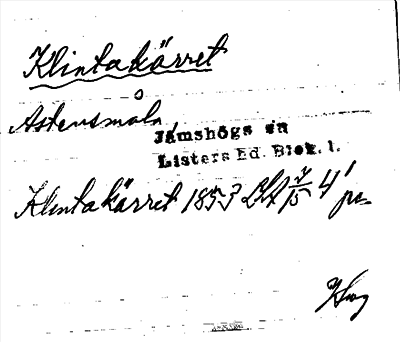 Klintakärret
Åstensmåla,
Jämshögs sn
Listers hd. Blek. l.
Klintakärret 1853 4'